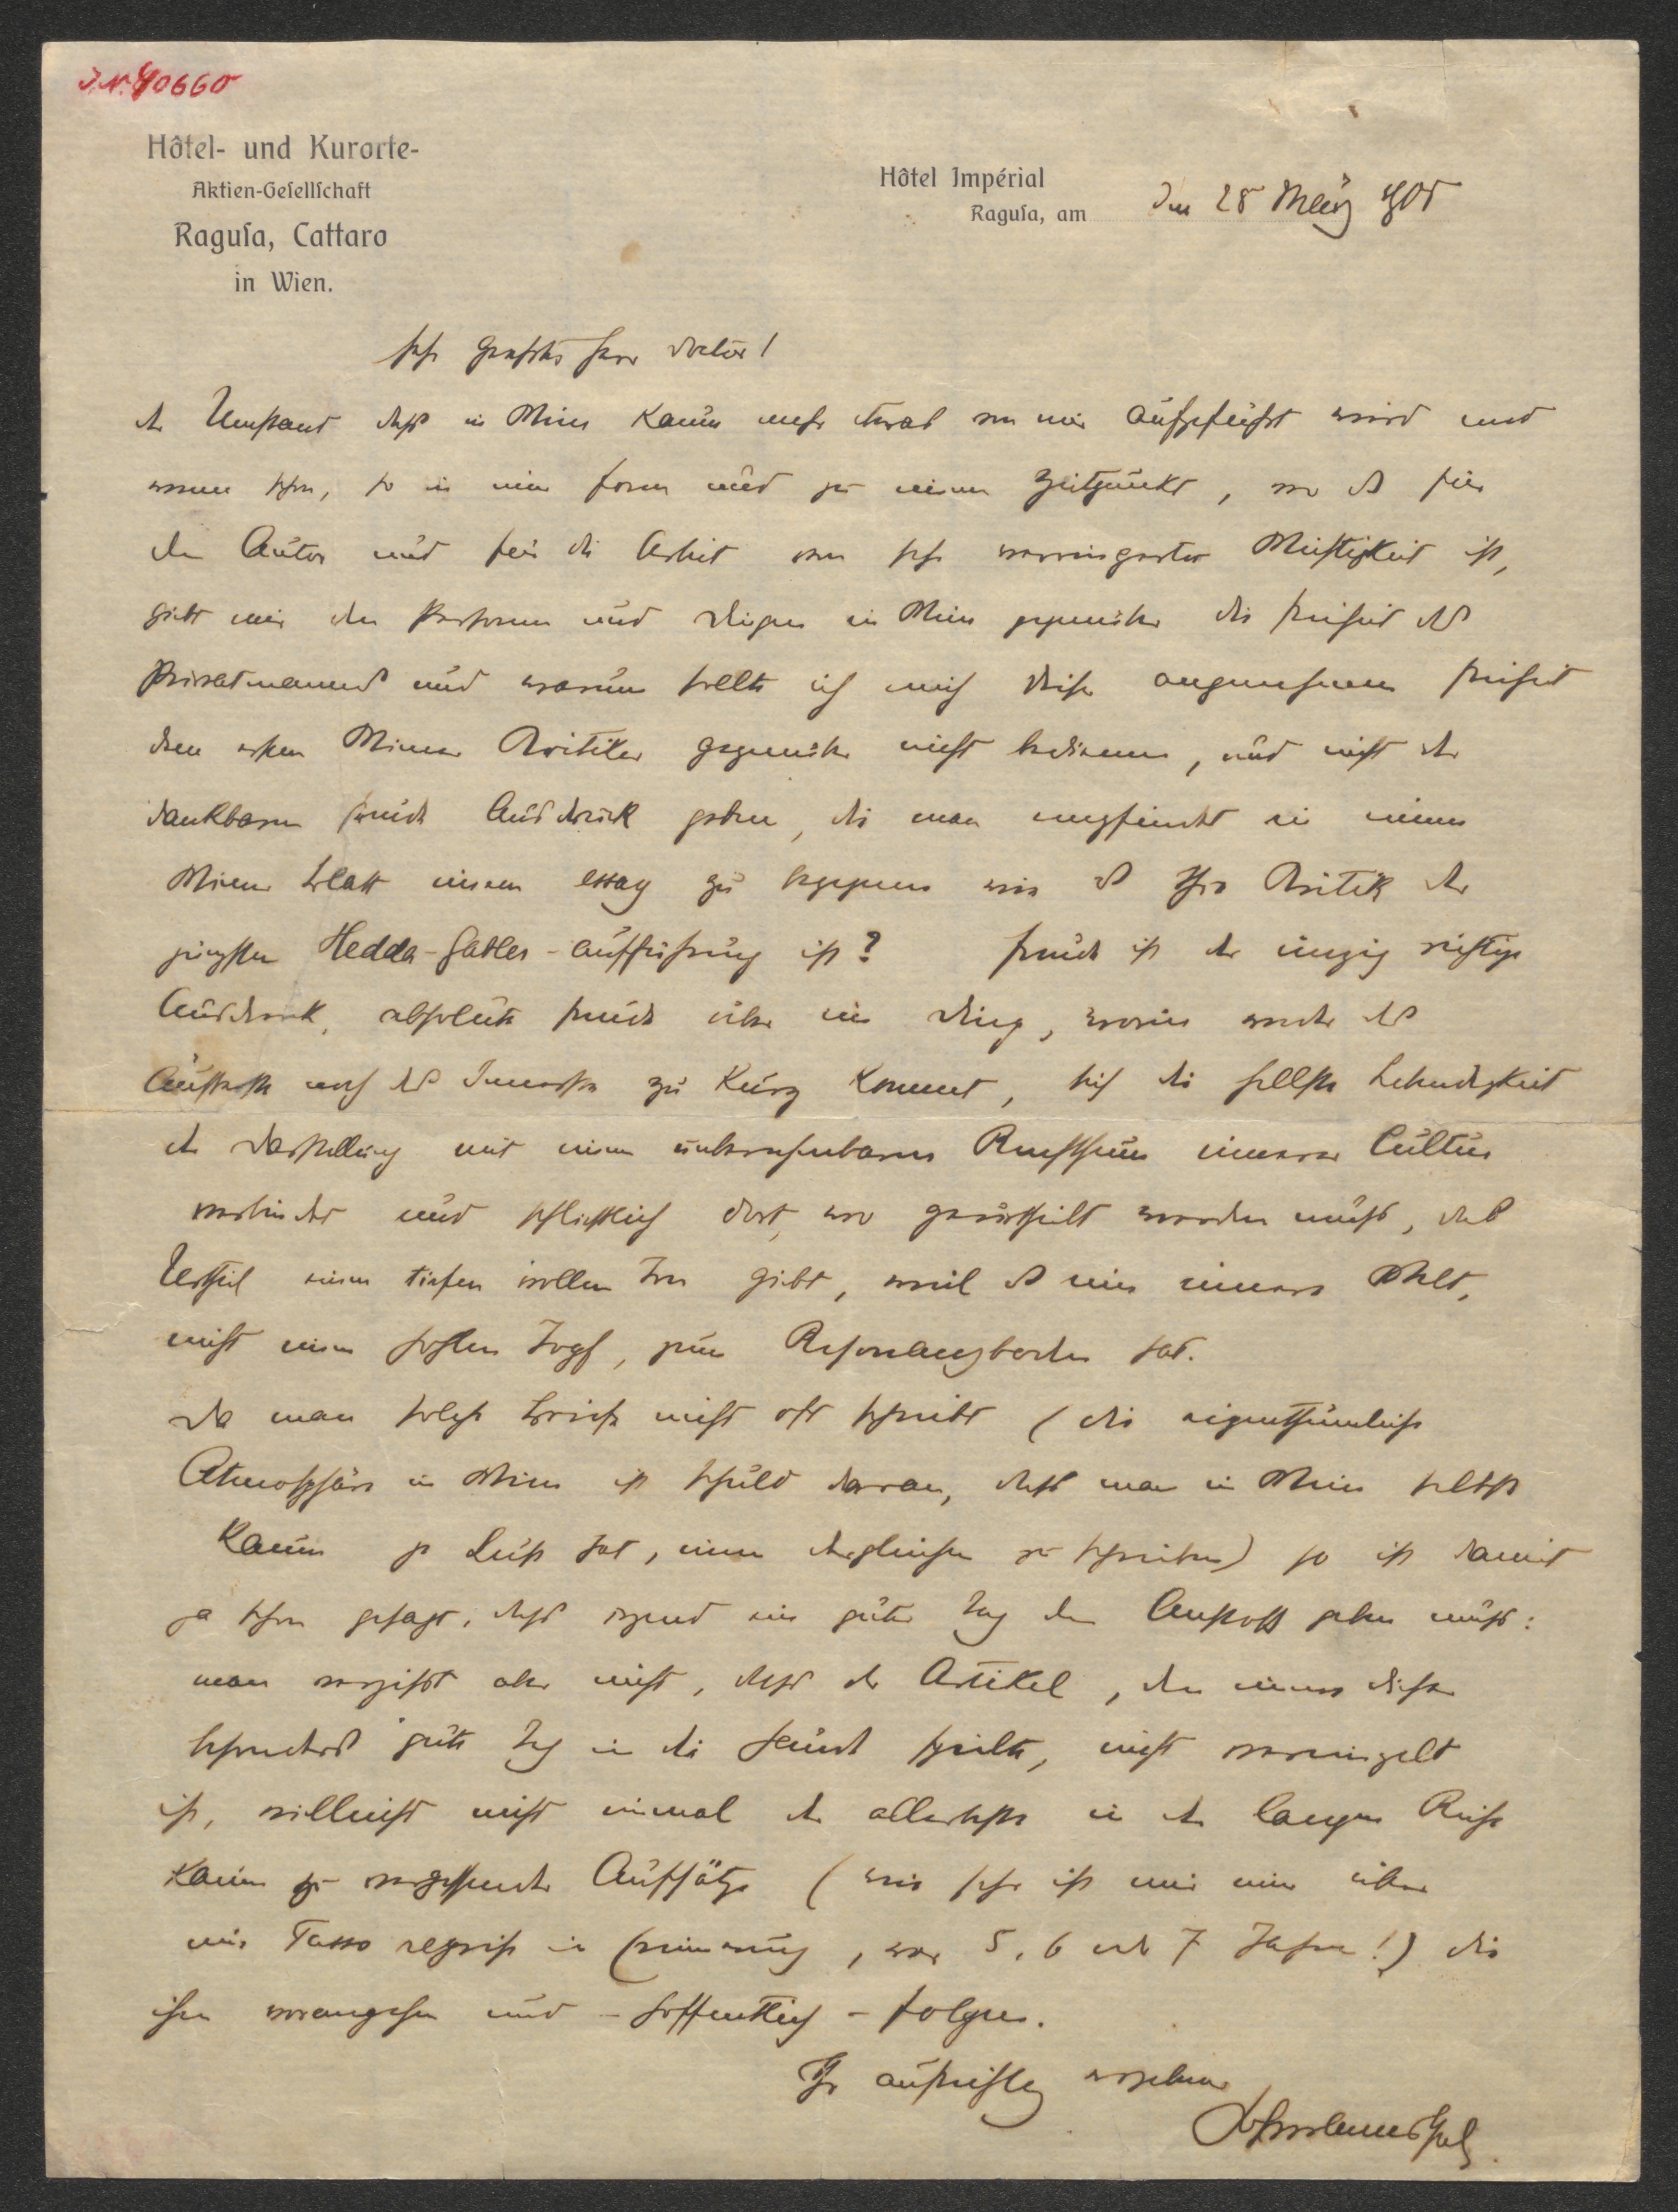 J.N. 40660
Hôtel- und Kurorte-
Aktien-Gesellschaft
Ragusa, Cattaro
in Wien.
Hôtel Impérial
Ragusa, am den 28 März 905
sehr geehrter Herr Doctor!
der Umstand dass in Wien kaum mehr etwas von mir aufgeführt wird und
wenn schon, so in einer Form und zu einem Zeitpunkt, wo es für
den Autor und für die Arbeit von sehr verringerter Wichtigkeit ist,
giebt mir den Personen und Dingen in Wien gegenüber die Freiheit des
Privatmannes und warum sollte ich mich dieser angenehmen Freiheit
dem ersten Wiener Kritiker gegenüber nicht bedienen, und nicht der
dankbaren Freude Ausdruck geben, die man empfindet in einem
Wiener Blatt einem essay zu begegnen wie es Ihre Kritik der
jüngsten Hedda-Gabler-aufführung ist? Freude ist der einzig richtige
Ausdruck, absolute Freude über ein Ding, worin weder das
Äusserste noch das Innerste zu kurz kommt, sich die hellste Lebendigkeit
der Darstellung mit einem unberechenbaren Reichthum innerer Cultur
verbindet und schließlich dort, wo geurtheilt werden muß, das
Urtheil einen tiefen vollen Ton gibt, weil es eine innere Welt,
nicht einen hohlen Topf, zum Resonanzboden hat.
Da man solche Briefe nicht oft schreibt (die eigenthümliche
Atmosphäre in Wien ist schuld daran, dass man in Wien selbst
kaum je Lust hat, einen dergleichen zu schreiben) so ist damit
ja schon gesagt, dass irgend ein guter Tag den Anstoß geben muß:
man vergisst aber nicht, dass der Artikel, den einem dieser
besonders gute Tag in die Hände spielte, nicht vereinzelt
ist, vielleicht nicht einmal der allerbeste in der langen Reihe
kaum zu vergessender Aufsätze (wie sehr ist mir einer über
eine Tasso reprise in Erinnerung, vor 5, 6 oder 7 Jahren!) die
ihm vorangehen und – hoffentlich – folgen.
Ihr aufrichtig ergebener
Hofmannsthal.